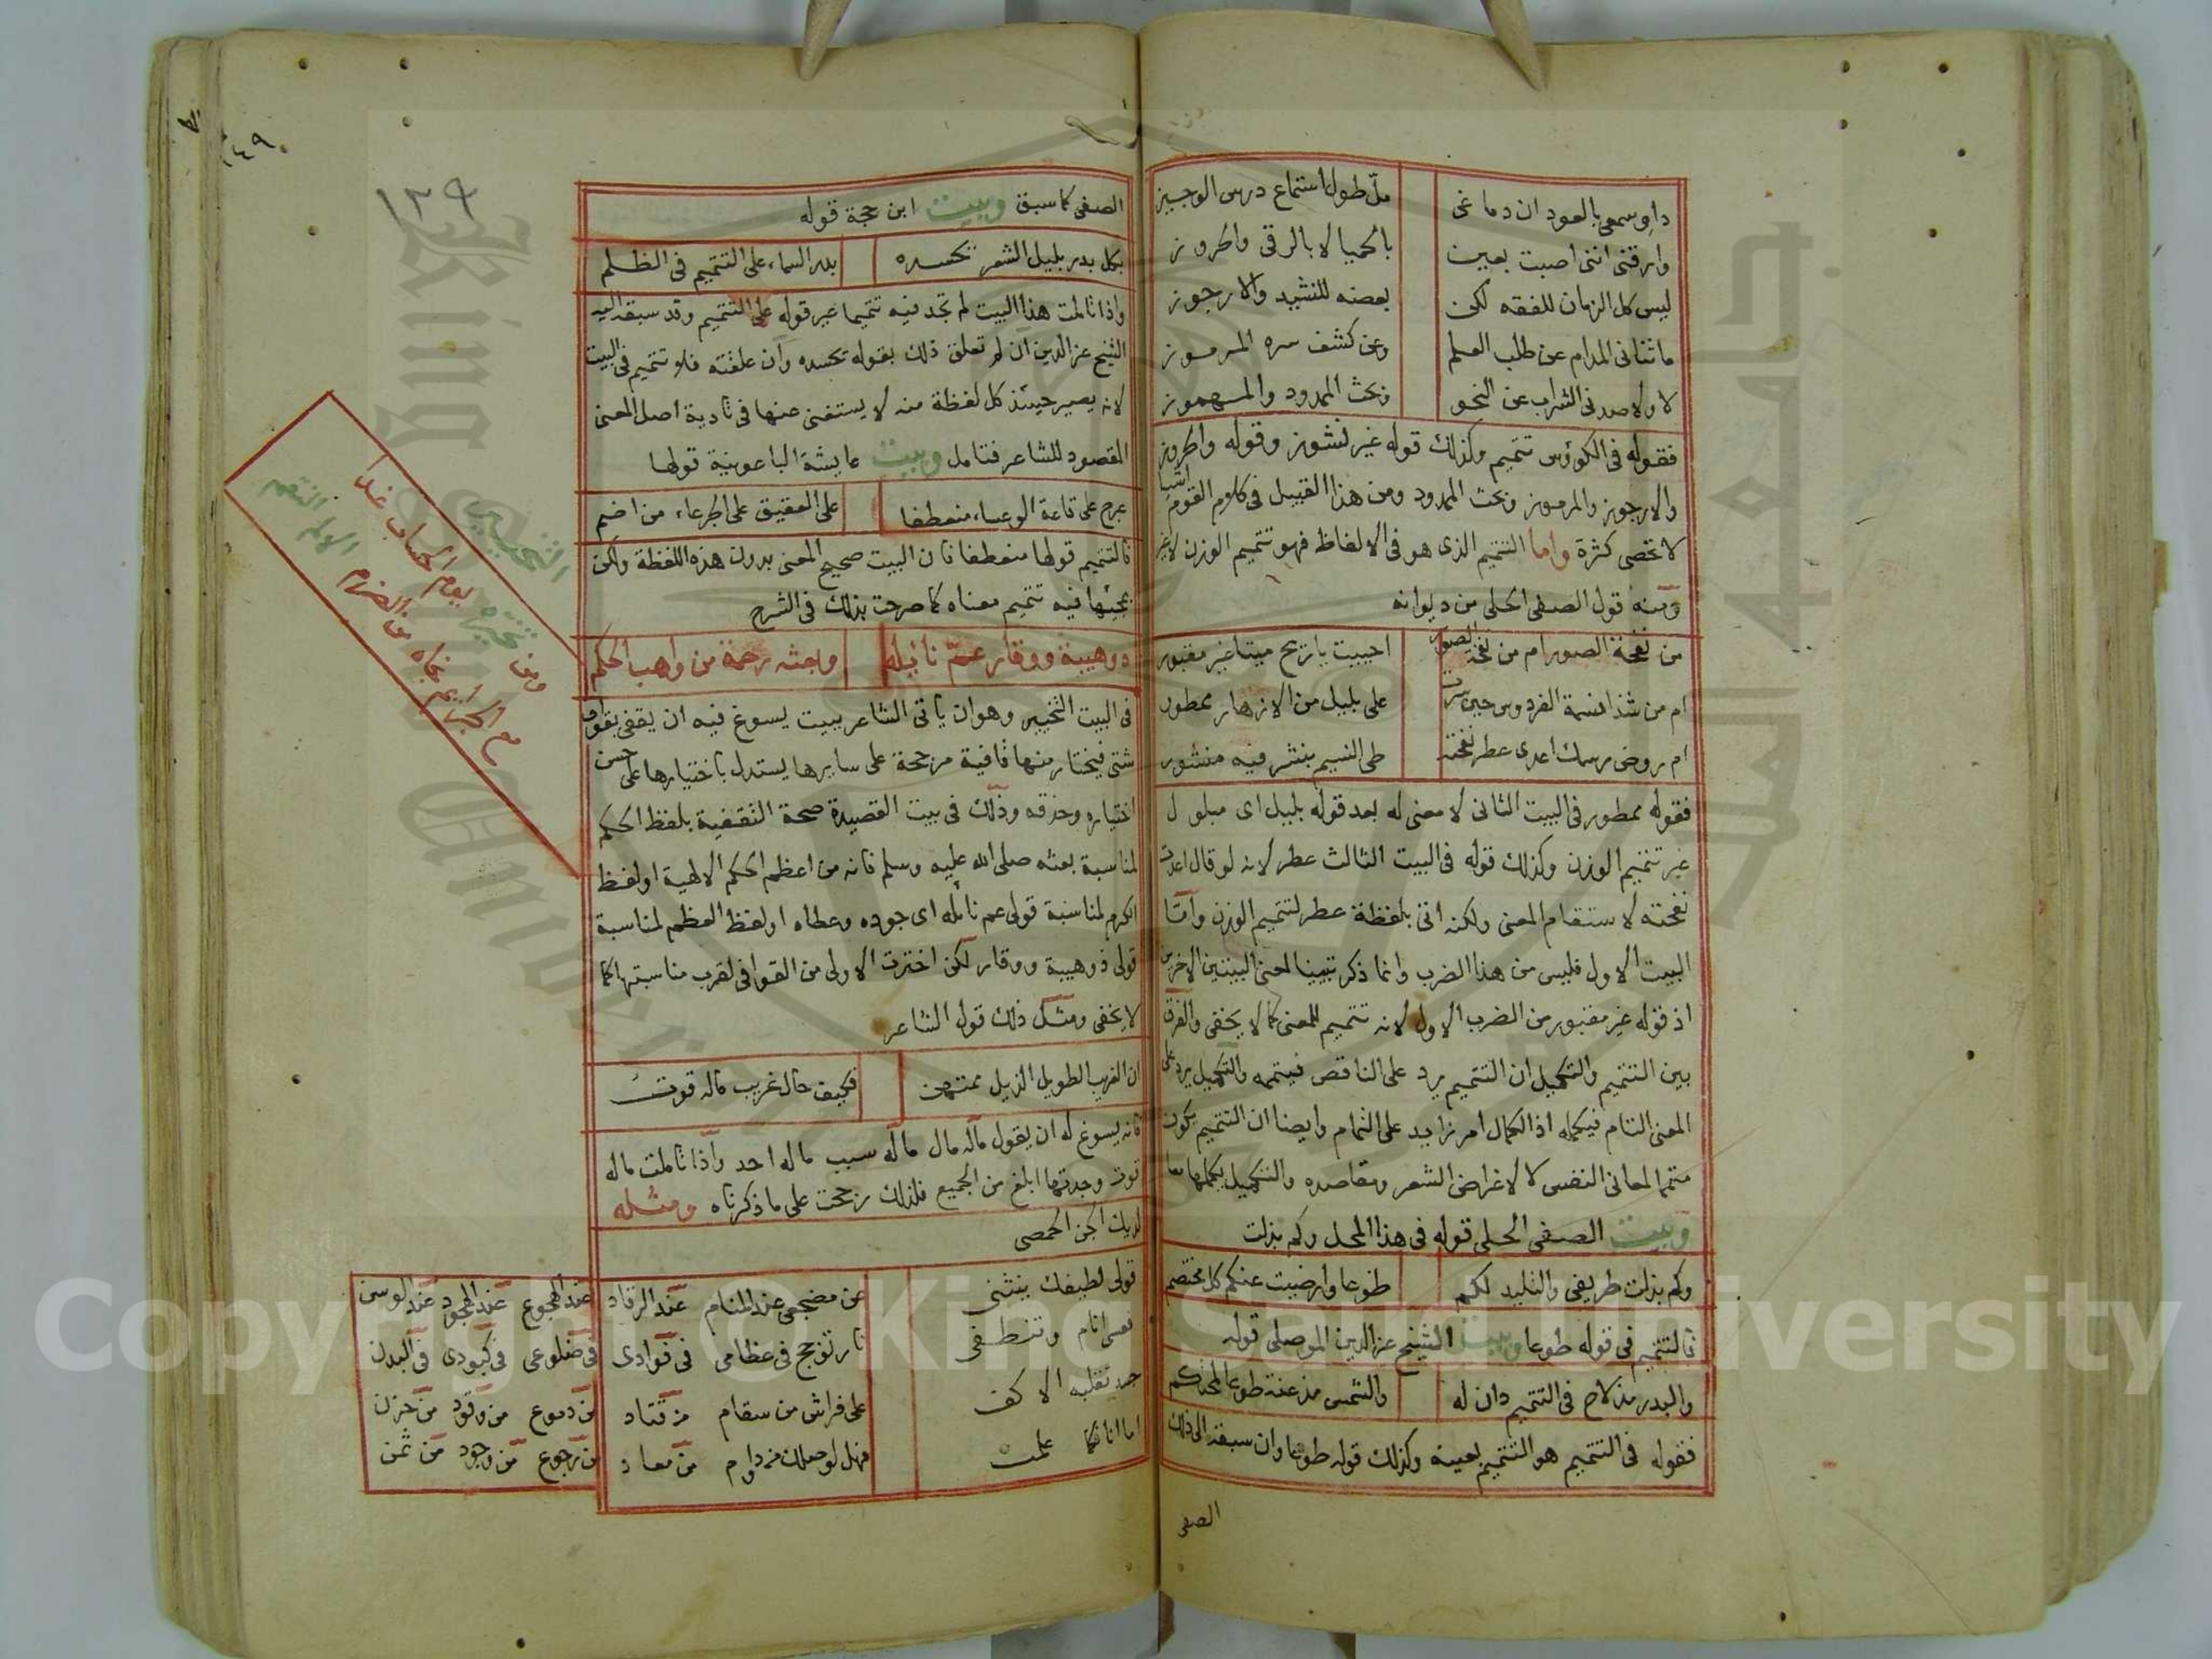 داو سمعي بالعود ان دماغى ملّ طول استماع درس الوجيز
وارقنى اننى اصبت بعين بالحميا لا بالرقى والحروز
ليس كل الزمان للفقه لكن بعضه للنشيد والارجوز
ما ثنانى المدام عن طلب العلم وعن كشف سره المرموز
لا ولا صدنى الشراب عن النحو وبحث الممدود والمهموز
فقوله فى الكوؤس تتميم وكذلك قوله غير نشوز وقوله والحروز
والارجوز والمرموز وبحث الممدود ومن هذا القبيل فى كلام القوم اشيا
لا تحصى كثرة واما التتميم الذى هو فى الالفاظ فهو تتميم الوزن لاغير
ومنه قول الصفى الحلى من ديوانه
من نفحة الصور ام من نفخة الصور احييت ياريح ميتا غير مقبور
ام من شذا نسمة الفردوس حين سرت على بليل من الازهار ممطور
ام روض رسمك اعدى عطر نفحته طى النسيم بنشر فيه منشور
فقوله ممطور فى البيت الثانى لا معنى له بعد قوله بليل اى مبلول
غير تتميم الوزن وكذلك قوله فى البيت الثالث عطر لانه لو قال اعدت
نفحته لاستقام المعنى ولكنه اتى بلفظة عطر لتتميم الوزن وامّا
البيت الاول فليس من هذا الضرب وانما ذكر تتميما لمعنى البيتين الاخرين
اذ قوله غير مقبور من الضرب الاول لانه تتميم للمعنى كما لا يخفى والفرق
بين التتميم والتكميل ان التتميم يرد على الناقص فيتممه والتكميل يرد على
المعنى التام فيكمله اذ الكمال امر زايد على التمام وايضا ان التتميم يكون
متمما لمعانى النفس لا لاغراض الشعر ومقاصده والتكميل يكملها معا
وبيت الصفى الحلى قوله فى هذا المحل وكم بذلت
وكم بذلت طريفى والتليد لكم طوعا وارضيت عنكم كل مختصم
فالتتميم فى قوله طوعا وبيت الشيخ عز الدين الموصلى قوله
والبدر مذ لاح فى التتميم دان له والشمس مذعنة طوعا لمحتكم
فقوله فى التتميم هو التتميم بعينه وكذلك قوله طوعا وان سبقه الى ذلك
الصفى
١٣٩
١٤٩
الصفى كما سبق وبيت ابن حجة قوله
بكل بدر بليل الشعر تحسده بدر السماء على التتميم فى الظلم
واذا تاملت هذا البيت لم تجد فيه تتميما غير قوله على التتميم وقد سبقه اليه
الشيخ عز الدين ان لم تعلق ذلك بقوله تحسده وان علقته فلا تتميم فى البيت
لانه يصير حينئذ كل لفظة منه لا يستغنى عنها فى تادية اصل المعنى
المقصود للشاعر فتامل وبيت عايشة الباعونية قولها
عرج على قاعة الوعساء منعطفا على العقيق على الجرعاء من اضم
فالتتميم قولها منعطفا فان البيت صحيح المعنى بدون هذه اللفظة ولكن
بمجيئها فيه تتميم معناه كما صرحت بذلك فى الشرح
ذو هيبة ووقار عمّ نائله وبعثه رحمة من واهب الحكم
فى البيت التخيير وهو ان ياتى الشاعر ببيت يسوغ فيه ان يقفى بقواف
شتى فيختار منها قافية مرجحة على سايرها يستدل باختيارها على حسن
اختياره وحذقه وذلك فى بيت القصيدة صحة التقفية بلفظ الحكم
لمناسبة بعثه صلى الله عليه وسلم فانه من اعظم الحكم الالهية او لفظ
الكرم لمناسبة قولى عم نائله اى جوده وعطاه او لفظ العظم لمناسبة
قولى ذو هيبة ووقار لكن اخترت الاولى من القوافى لقرب مناسبتها كما
لا يخفى ومثل ذلك قول الشاعر
ان الغريب الطويل الذيل ممتهن فكيف حال غريب ماله قوت
فانه يسوغ له ان يقول ماله مال ماله سبب ماله احد واذا تاملت ماله
قوت وجدتها ابلغ من الجميع فلذلك رجحت على ما ذكرناه ومثله
لديك الجن الحمصى
قولى لطيفك ينثنى عن مضجعى عند المنام عند الرقاد عند الهجوع عند الهجود عند الوسن
فعسى انام وتنطفى نار تؤجج فى عظامى فى فؤادى فى ضلوعى فى كبودى فى البدن
جسد تقلبه الاكف على فراش من سقام من قتاد من دموع من وقود من حزن
اما انا فكما علمت فهل لوصلك من دوام من معاد من رجوع من وجود من ثمن
التخيير
تخيره يوم الحساب غدا